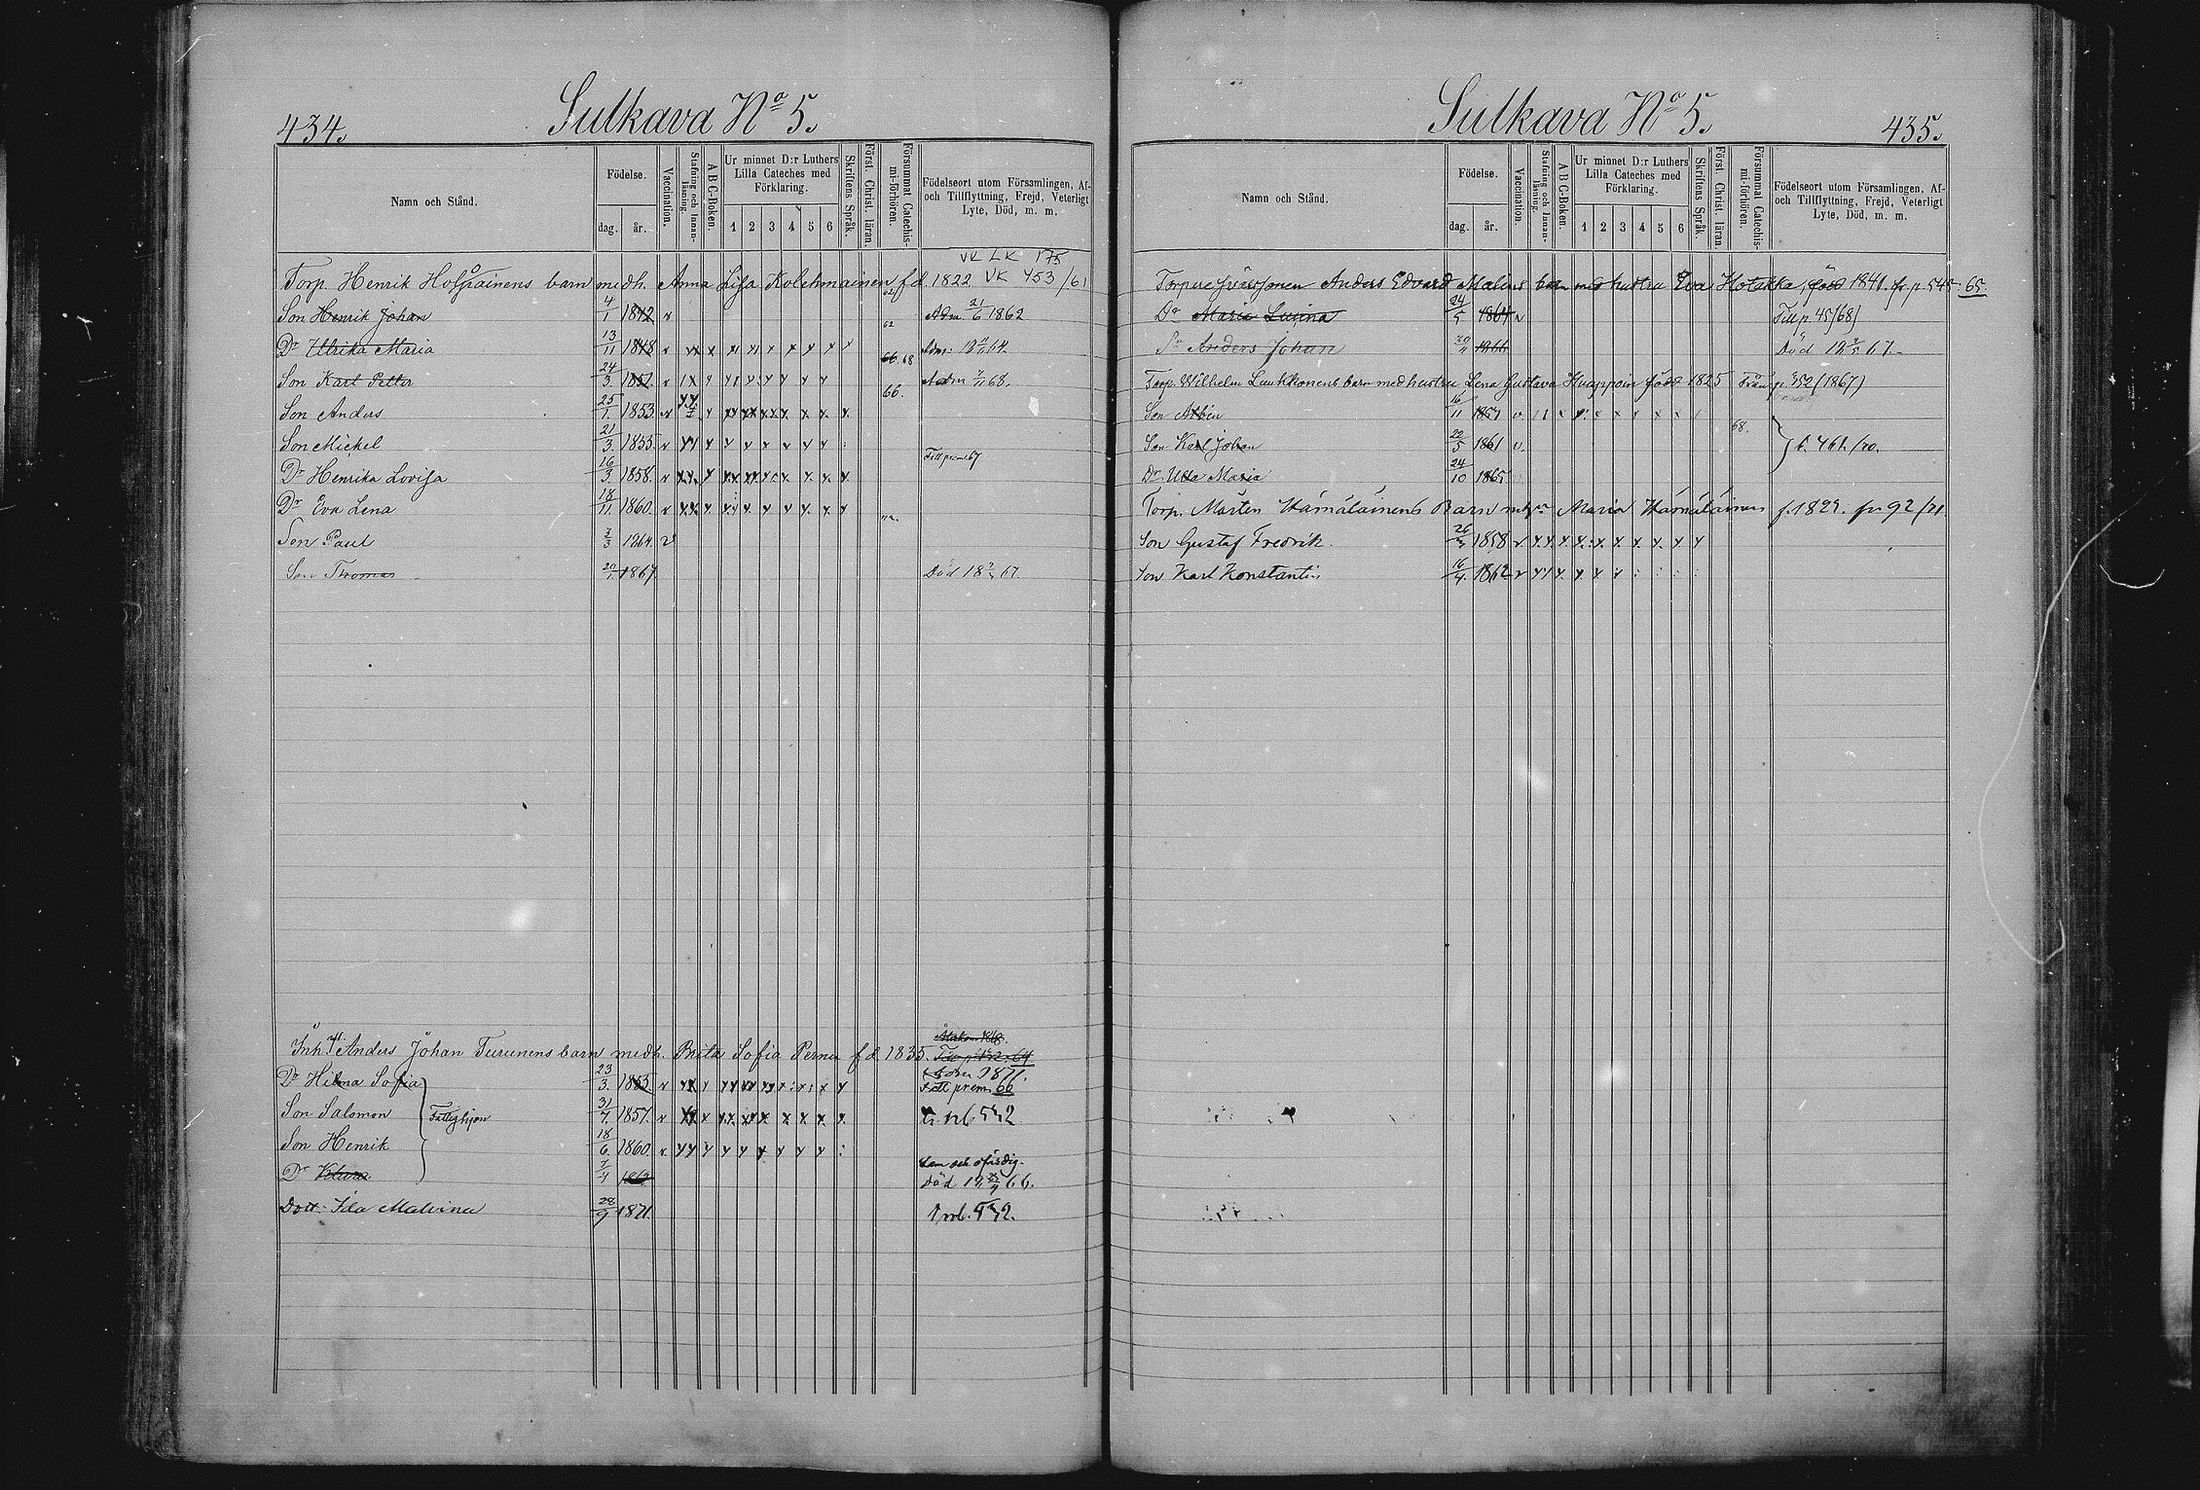 434.
Sulkava No 5.
Namn och Stånd.
Födelse.
dag.
år.
Vaccination.
Stafning och Innan-läsning.
A B C-Boken.
Ur minnet D:r Luthers
Lilla Cateches med
Förklaring.
1 2 3 4 5 6
Skriftens Språk.
Först. Christ. läran.
Försummat Catechis-
mi-förhören.
Födelseort utom Församlingen, Af-
och Tillflyttning, Frejd, Veterligt
Lyte, Död, m. m.
VK LK 175
Torp. Henrik barn medh. Anna Lisa Kolehmainen fd 1822 VK 453/61
Son Henrik Johan 4/1 1842 Adm. 21/6 1862
Dr Ulrika Maria 13/11 1848
Son Karl Petter 24/3. 1851. 66. 68
Son Anders 25/1. 1853 66.
Son Mickel 21/3. 1855
Dr Henrika Lovisa 16/3. 1858. Till prem 67
Dr Eva Lena 18/11. 1860.
Son Paul 2/3 1864. v
Son Thomas 1867 Död 18 67.
Inh. Anders Johan Turunens barn medh. Brita Sofia Perna fd 1835.
Dr Hilma Sofia 23/3. 1855 Till prem 66
Son Salomon 31/7. 1857.
Fattighjon
Son Henrik 18/6. 1860
Dr Klara 7/4 Lam och ofärdig.
Död 18 66.
Dott. Ida Malvina 28/9 1871.
Sulkava No 5.
435.
Namn och Stånd.
Födelse.
dag.
år.
Vaccination.
Stafning och Innan-läsning.
A B C-Boken.
Ur minnet D:r Luthers
Lilla Cateches med
Förklaring.
1 2 3 4 5 6
Skriftens Språk.
Först. Christ. läran.
Försummat Catechis-
mi-förhören.
Födelseort utom Församlingen, Af-
och Tillflyttning, Frejd, Veterligt
Lyte, Död, m. m.
Anders Edvard Malins barn med hustru Eva Hotakka, född 1841. fr p 545-65
Dr Maria Lucina 24/5 1864 Till p. 45/68)
Sn Anders Johan 1866 Död 18 67.
Torp. Wilhelm Laukkonens barn med hustru Lena Gustava född 1825 Från p. 452 (1867)
Son Albin 16/11 1857
Son Karl Johan 22/5 1861 v. 68. t. 461./70.
Dr Ulla Maria 24/10 1865
Torp. Mårten Hämäläinens Barn m. hu. Maria Hämäläinen f. 1829. fr 92/71
Son Gustaf Fredrik. 1858
Son Karl Konstantin 16/4. 1862